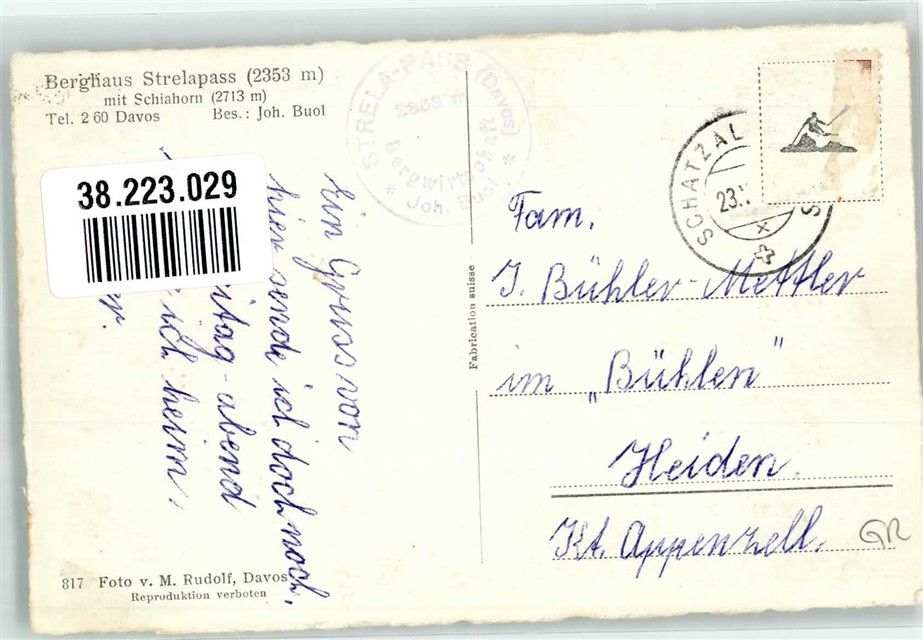 Berghaus Strelapass (2353 m)
mit Schiahorn (2713 m)
Tel. 2 60 Davos Bes.: Joh. Buol
STRELA-PASS (Davos)
2353 m
Bergwirtschaft
* Joh. Buol *
38.223.029
Ein Gruss von
hier sende ich doch noch.
abend
ich heim.
Fabrication suisse
SCHATZAL
23.
X
S
Fam.
J. Bühler-Mettler
im "Bühlen"
Heiden.
Kt. Appenzell.
GR
817 Foto v. M. Rudolf, Davos
Reproduktion verboten